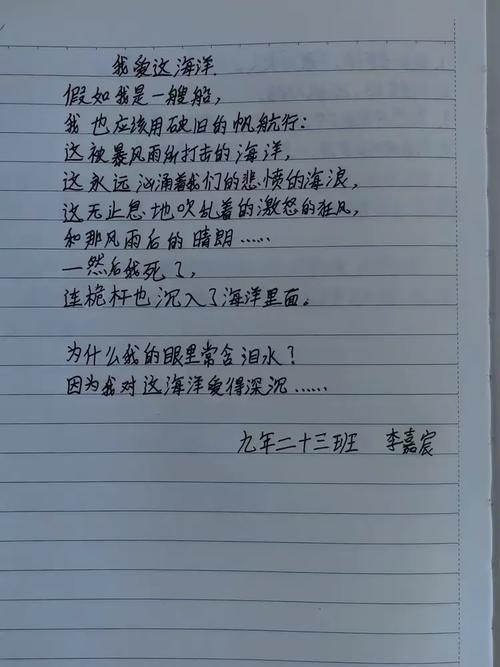 我爱这海洋.
假如我是一艘船，
我也应该用破旧的帆航行：
这被暴风雨所打击的海洋，
这永远汹涌着我们的悲愤的海浪，
这无止息地吹乱着的激怒的狂风，
和那风雨后的晴朗……
一然后我死了，
连桅杆也沉入了海洋里面。
为什么我的眼里常含泪水？
因为我对这海洋爱得深沉……
九年二十三班 李嘉宸